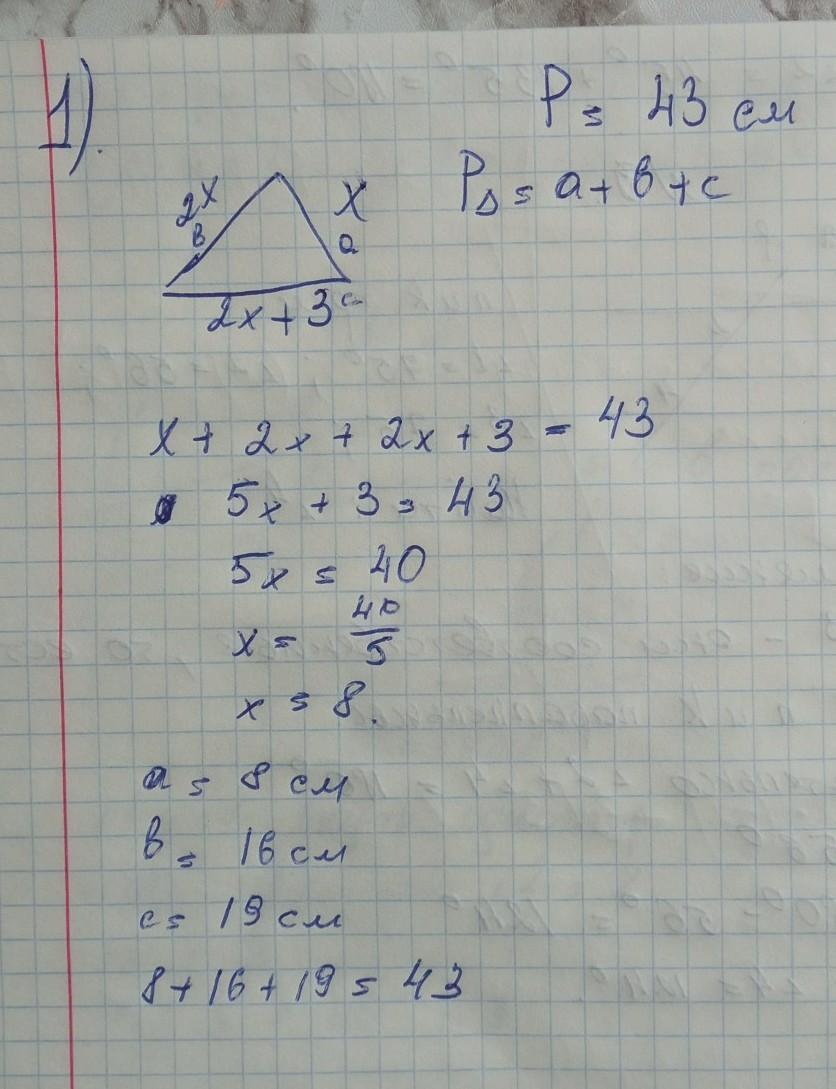 1).
P = 43 см
P△ = a + в + c
2x
в
x
a
2x + 3
c
x + 2x + 2x + 3 = 43
5x + 3 = 43
5x = 40
x = 40/5
x = 8.
a = 8 см
в = 16 см
c = 19 см
8 + 16 + 19 = 43